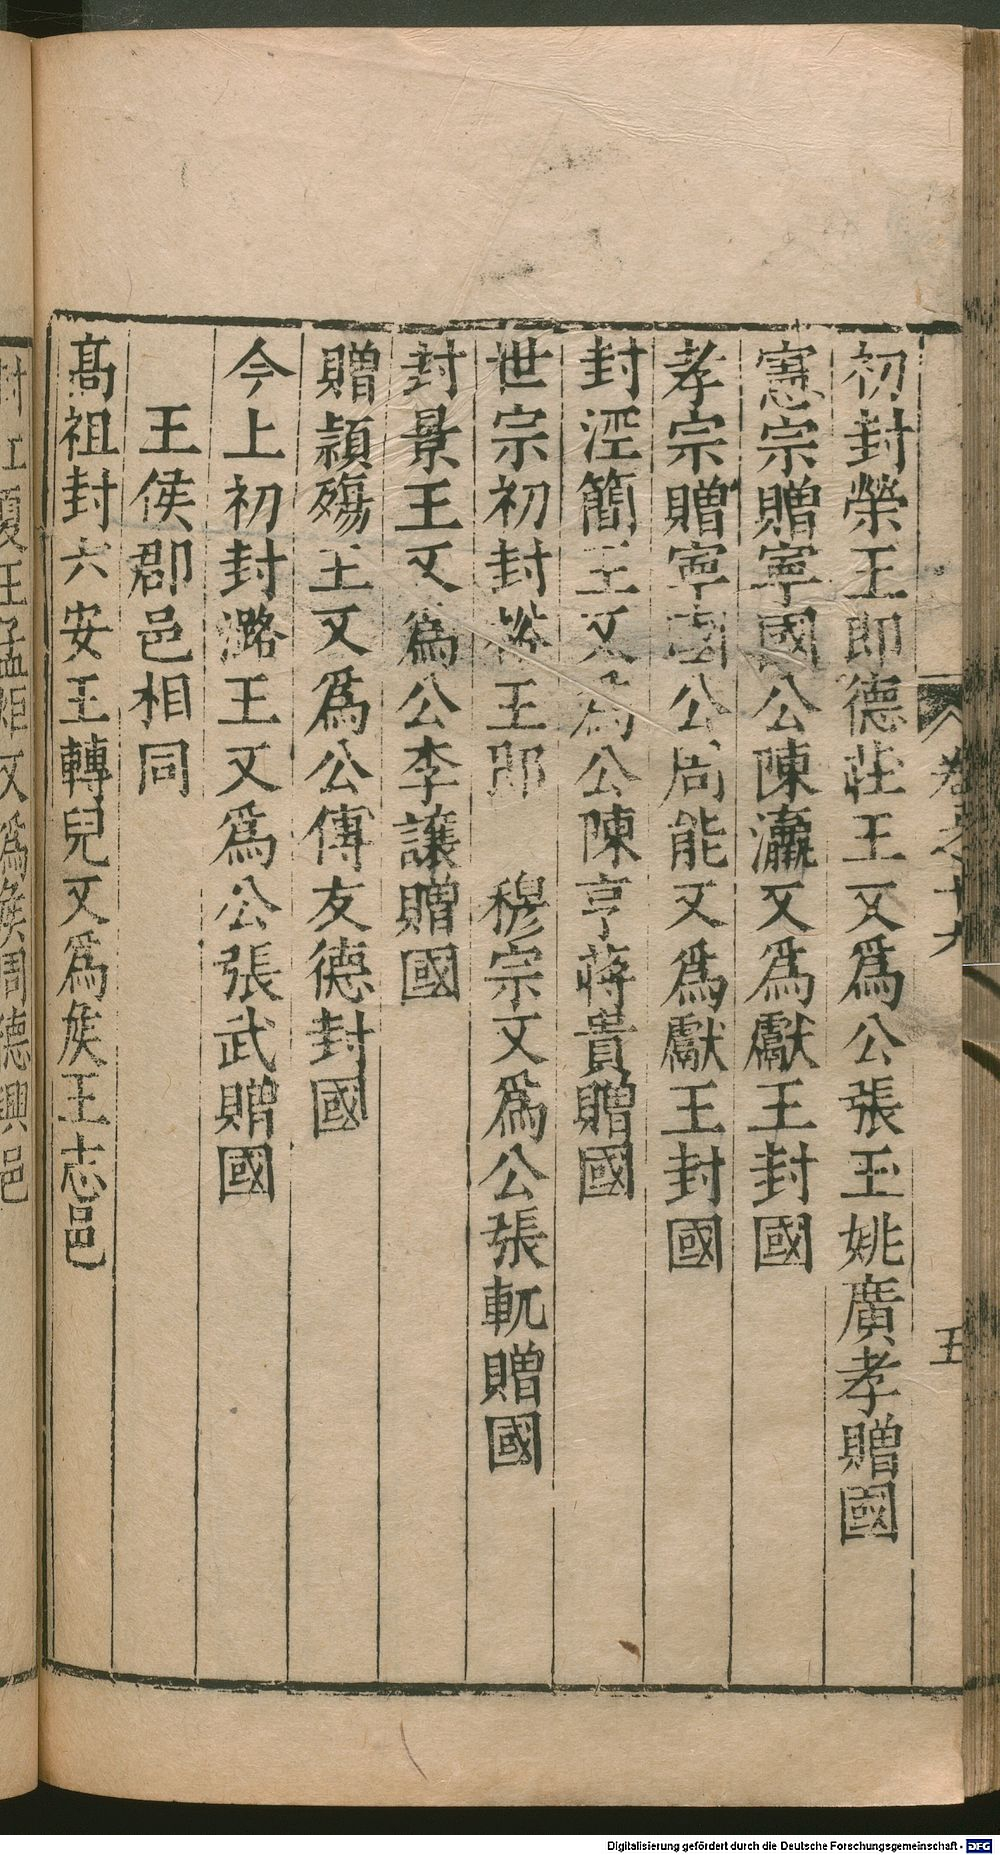 初封榮王即德莊王又爲公張玉姚廣孝贈國
憲宗贈寧國公陳瀛又爲獻王封國
孝宗贈寧國公周能又爲獻王封國
封涇簡王又爲公陳亨蔣貴贈國
世宗初封裕王即 穆宗又爲公張軏贈國
封景王又爲公李讓贈國
贈潁殤王又爲公傅友德封國
今上初封潞王又爲公張武贈國
王侯郡邑相同
高祖封六安王轉兒又爲侯王志邑
五
封江夏王孟炬又爲侯周德興邑
Digitalisierung gefördert durch die Deutsche Forschungsgemeinschaft - DFG